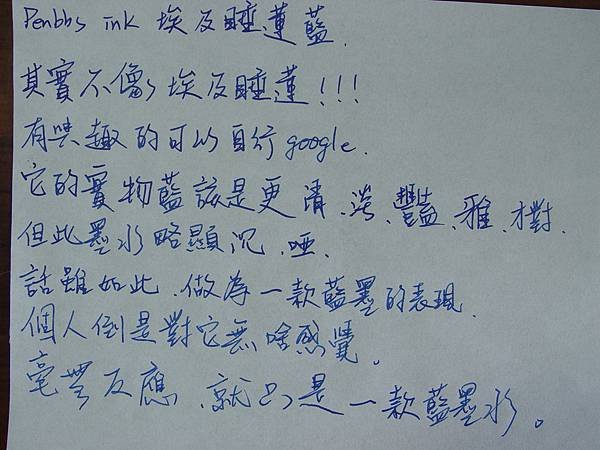 Penbbs ink 埃及睡蓮藍.
其實不像埃及睡蓮!!!
有興趣的可以自行google.
它的實物藍該是更清、淡、豔、雅、才對.
但此墨水略顯沉、啞、
話雖如此、做為一款藍墨的表現.
個人倒是對它無啥感覺。
毫無反應、就只是一款藍墨水。